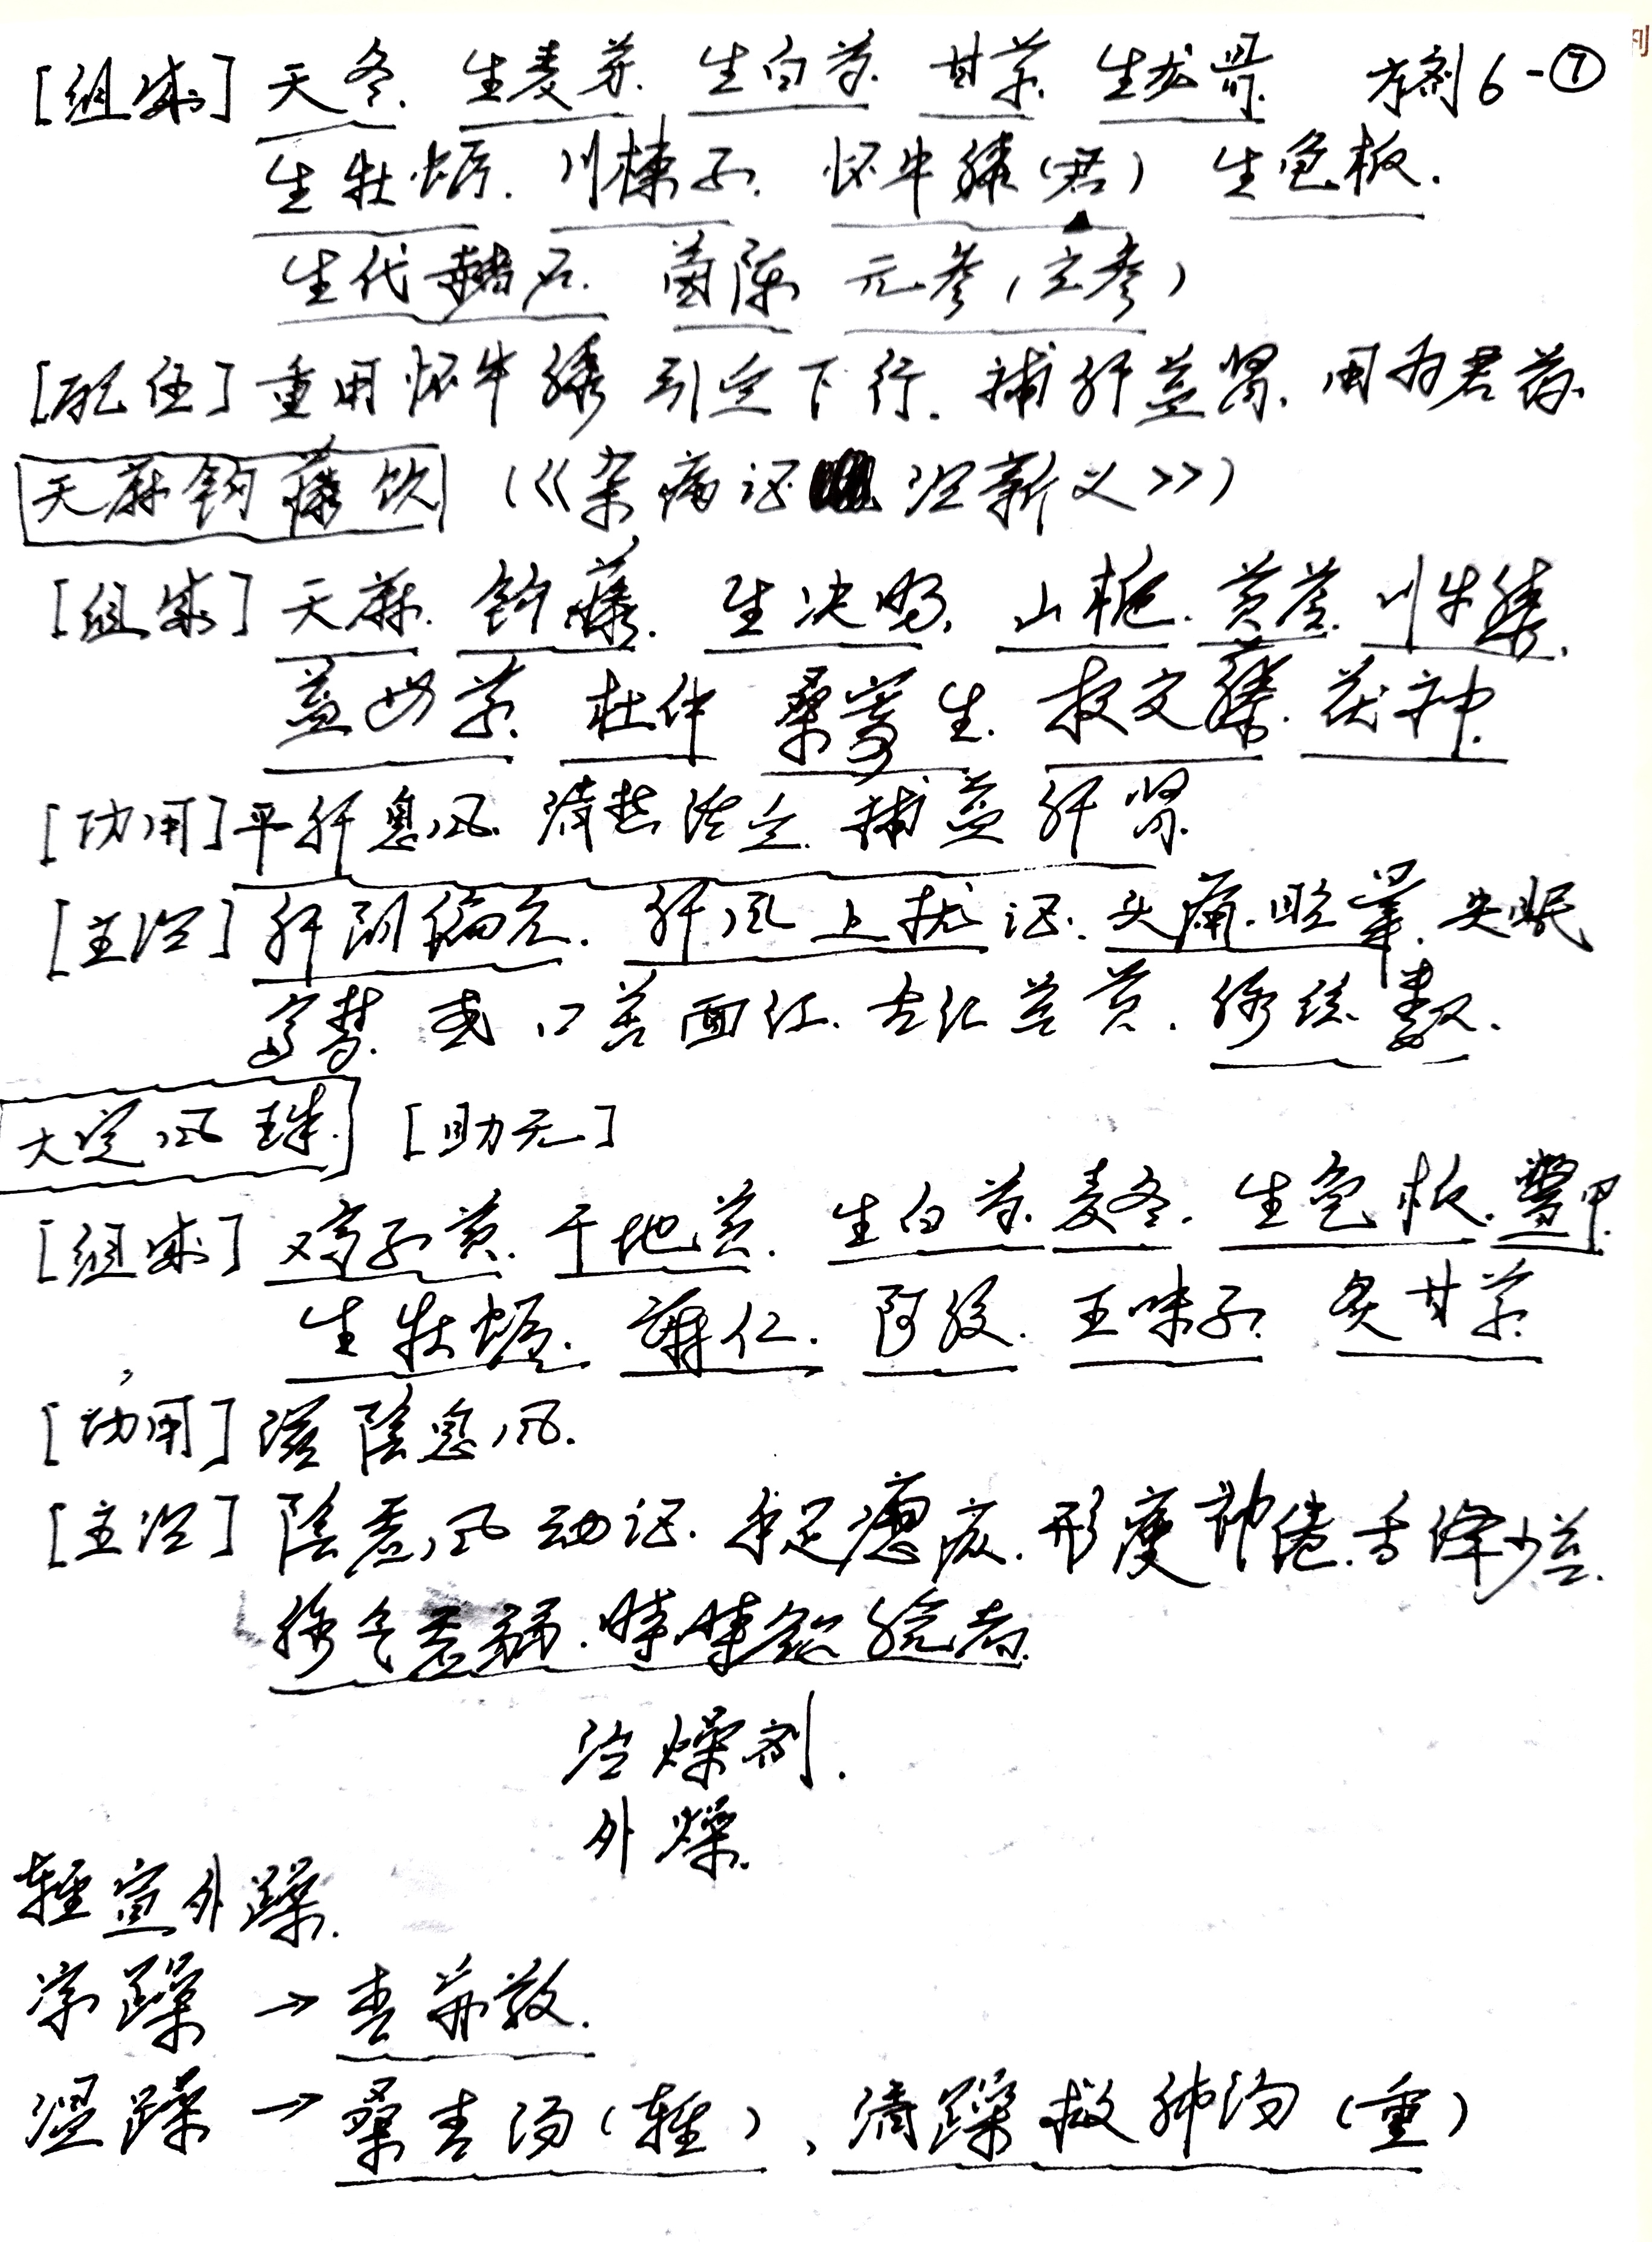 [组成] 天冬. 生麦芽. 生白芍. 甘草. 生龙骨. 方剂6-⑦
生牡蛎. 川楝子. 怀牛膝(君) 生龟板.
生代赭石. 茵陈 元参(玄参)
[配伍] 重用怀牛膝 引血下行. 补肝益肾. 用为君药.
天麻钩藤饮 (《杂病证治新义》)
[组成] 天麻. 钩藤. 生决明. 山栀. 黄芩. 川牛膝.
益母草. 杜仲 桑寄生. 夜交藤. 茯神.
[功用] 平肝息风. 清热活血. 补益肝肾.
[主治] 肝阳偏亢. 肝风上扰证. 头痛. 眩晕. 失眠
多梦. 或口苦面红. 舌红苔黄. 脉弦数.
大定风珠. [助无]
[组成] 鸡子黄. 干地黄. 生白芍. 麦冬. 生龟板. 鳖甲.
生牡蛎. 麻仁. 阿胶. 五味子. 炙甘草.
[功用] 滋阴息风.
[主治] 阴虚风动证. 手足瘛疭. 形瘦神倦. 舌绛少苔.
脉气虚弱. 時時欲脱者.
治燥剂.
外燥.
轻宣外躁.
凉躁 → 杏苏散.
温躁 → 桑杏汤(轻)、清躁救肺汤(重)